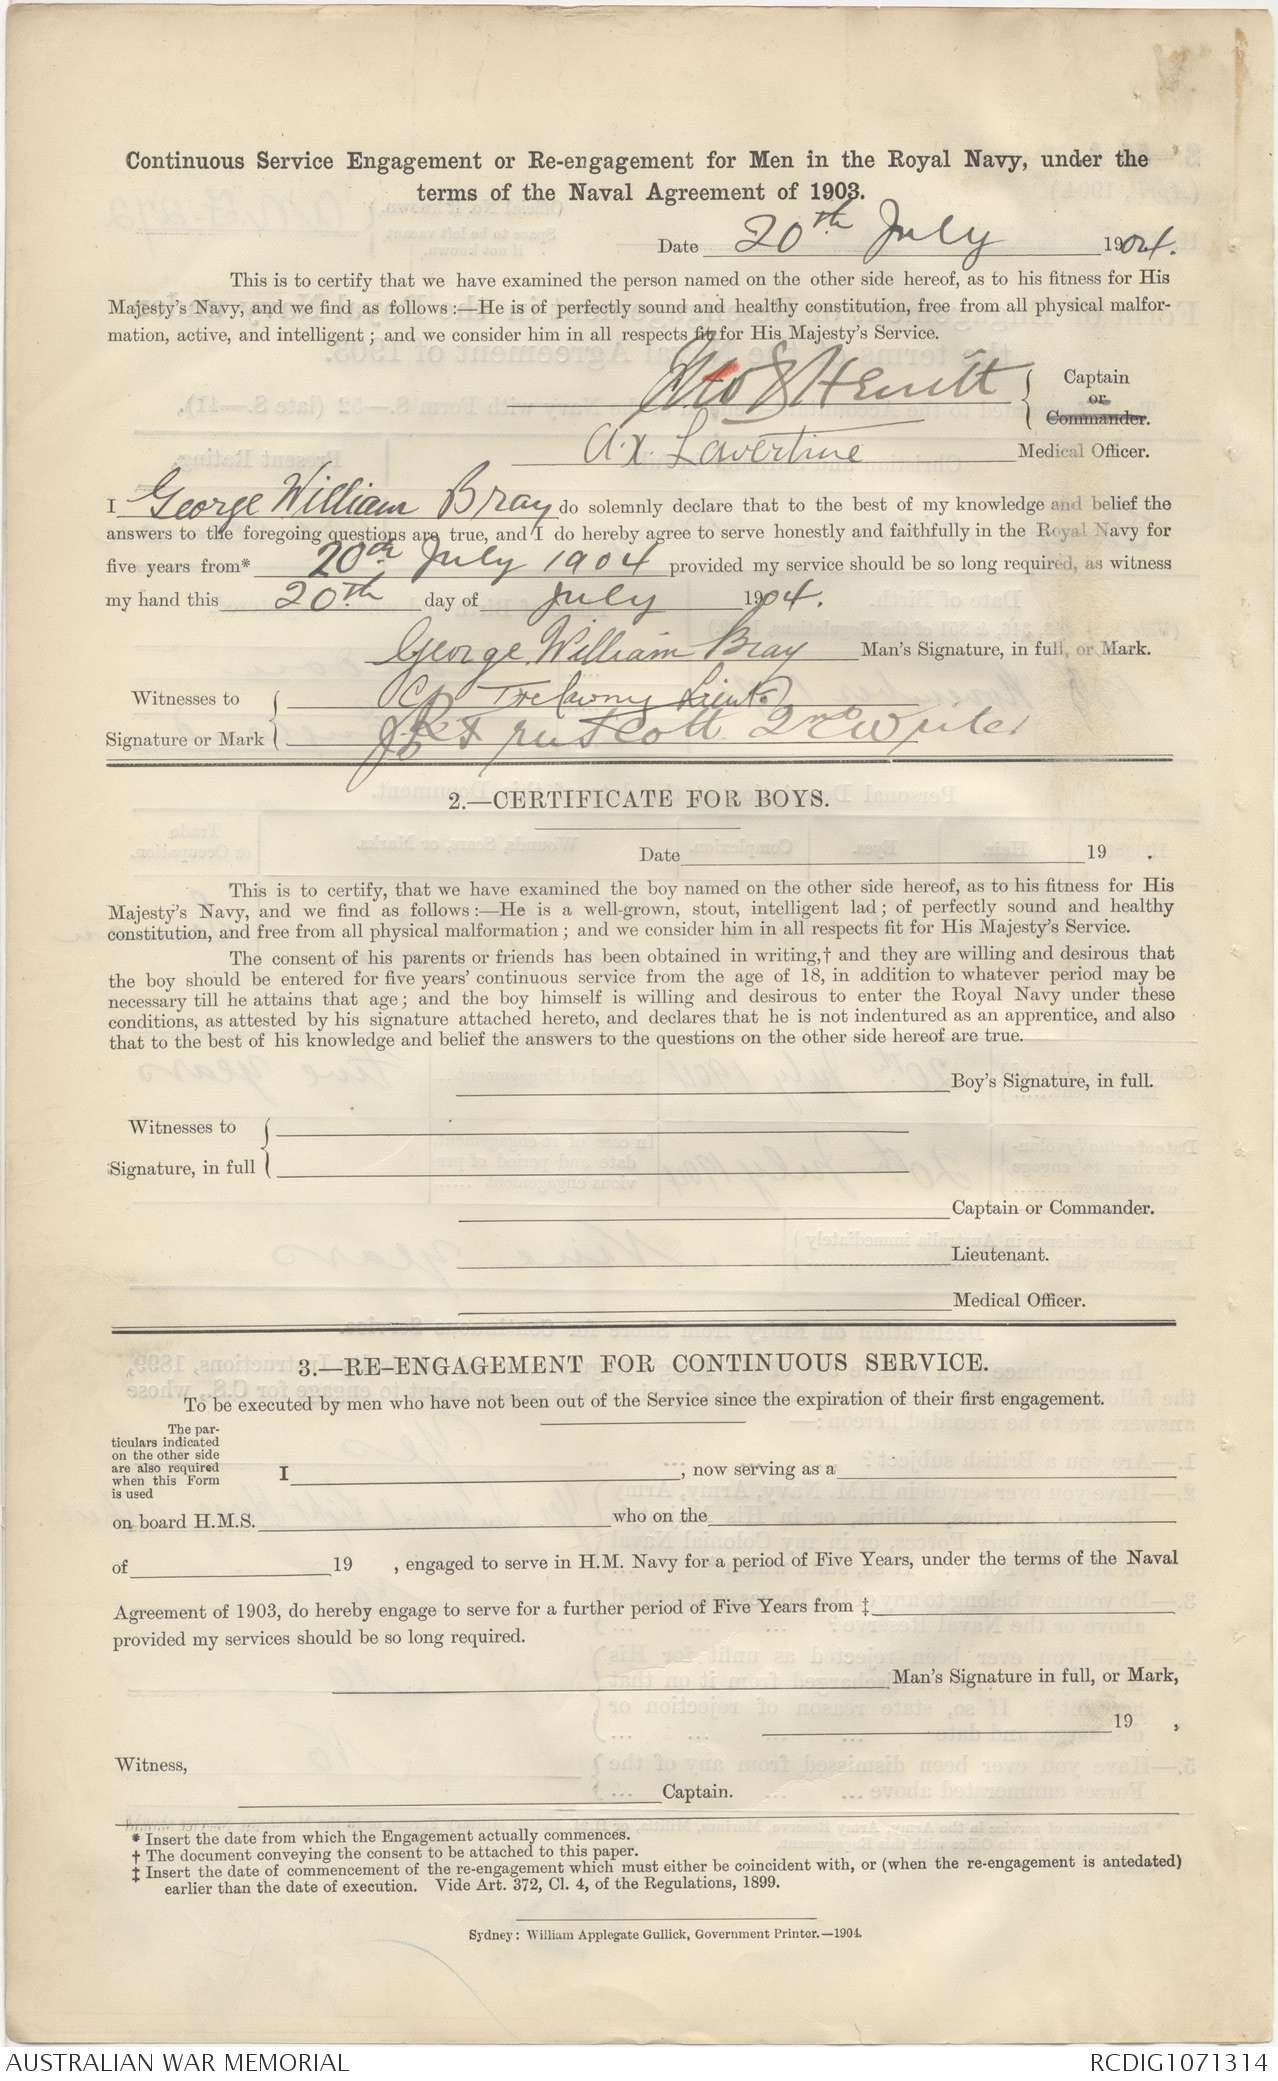 Continuous Service Engagement or Re-engagement for Men in the Royal Navy, under the
terms of the Naval Agreement of 1903.
Date 20th July 1904.
This is to certify that we have examined the person named on the other side hereof, as to his fitness for His
Majesty's Navy, and we find as follows :—He is of perfectly sound and healthy constitution, free from all physical malfor-
mation, active, and intelligent ; and we consider him in all respects fit for His Majesty's Service.
Hewitt Captain
or
Commander.
A. X. Lavertine Medical Officer.
I George William Bray do solemnly declare that to the best of my knowledge and belief the
answers to the foregoing questions are true, and I do hereby agree to serve honestly and faithfully in the Royal Navy for
five years from* 20th July 1904 provided my service should be so long required, as witness
my hand this 20th day of July 1904.
George William Bray Man's Signature, in full, or Mark.
Witnesses to
Signature or Mark
Trelawny Lieut.
Truscott 2nd Writer
2.—CERTIFICATE FOR BOYS.
Date 19 .
This is to certify, that we have examined the boy named on the other side hereof, as to his fitness for His
Majesty's Navy, and we find as follows :—He is a well-grown, stout, intelligent lad ; of perfectly sound and healthy
constitution, and free from all physical malformation ; and we consider him in all respects fit for His Majesty's Service.
The consent of his parents or friends has been obtained in writing,† and they are willing and desirous that
the boy should be entered for five years' continuous service from the age of 18, in addition to whatever period may be
necessary till he attains that age ; and the boy himself is willing and desirous to enter the Royal Navy under these
conditions, as attested by his signature attached hereto, and declares that he is not indentured as an apprentice, and also
that to the best of his knowledge and belief the answers to the questions on the other side hereof are true.
Boy's Signature, in full.
Witnesses to
Signature, in full
Captain or Commander.
Lieutenant.
Medical Officer.
3.—RE-ENGAGEMENT FOR CONTINUOUS SERVICE.
To be executed by men who have not been out of the Service since the expiration of their first engagement.
The par-
ticulars indicated
on the other side
are also required
when this Form
is used
I , now serving as a
on board H.M.S. who on the
of 19 , engaged to serve in H.M. Navy for a period of Five Years, under the terms of the Naval
Agreement of 1903, do hereby engage to serve for a further period of Five Years from ‡
provided my services should be so long required.
Man's Signature in full, or Mark,
19 ,
Witness,
Captain.
* Insert the date from which the Engagement actually commences.
† The document conveying the consent to be attached to this paper.
‡ Insert the date of commencement of the re-engagement which must either be coincident with, or (when the re-engagement is antedated)
earlier than the date of execution. Vide Art. 372, Cl. 4, of the Regulations, 1899.
Sydney : William Applegate Gullick, Government Printer.—1904.
AUSTRALIAN WAR MEMORIAL
RCDIG1071314